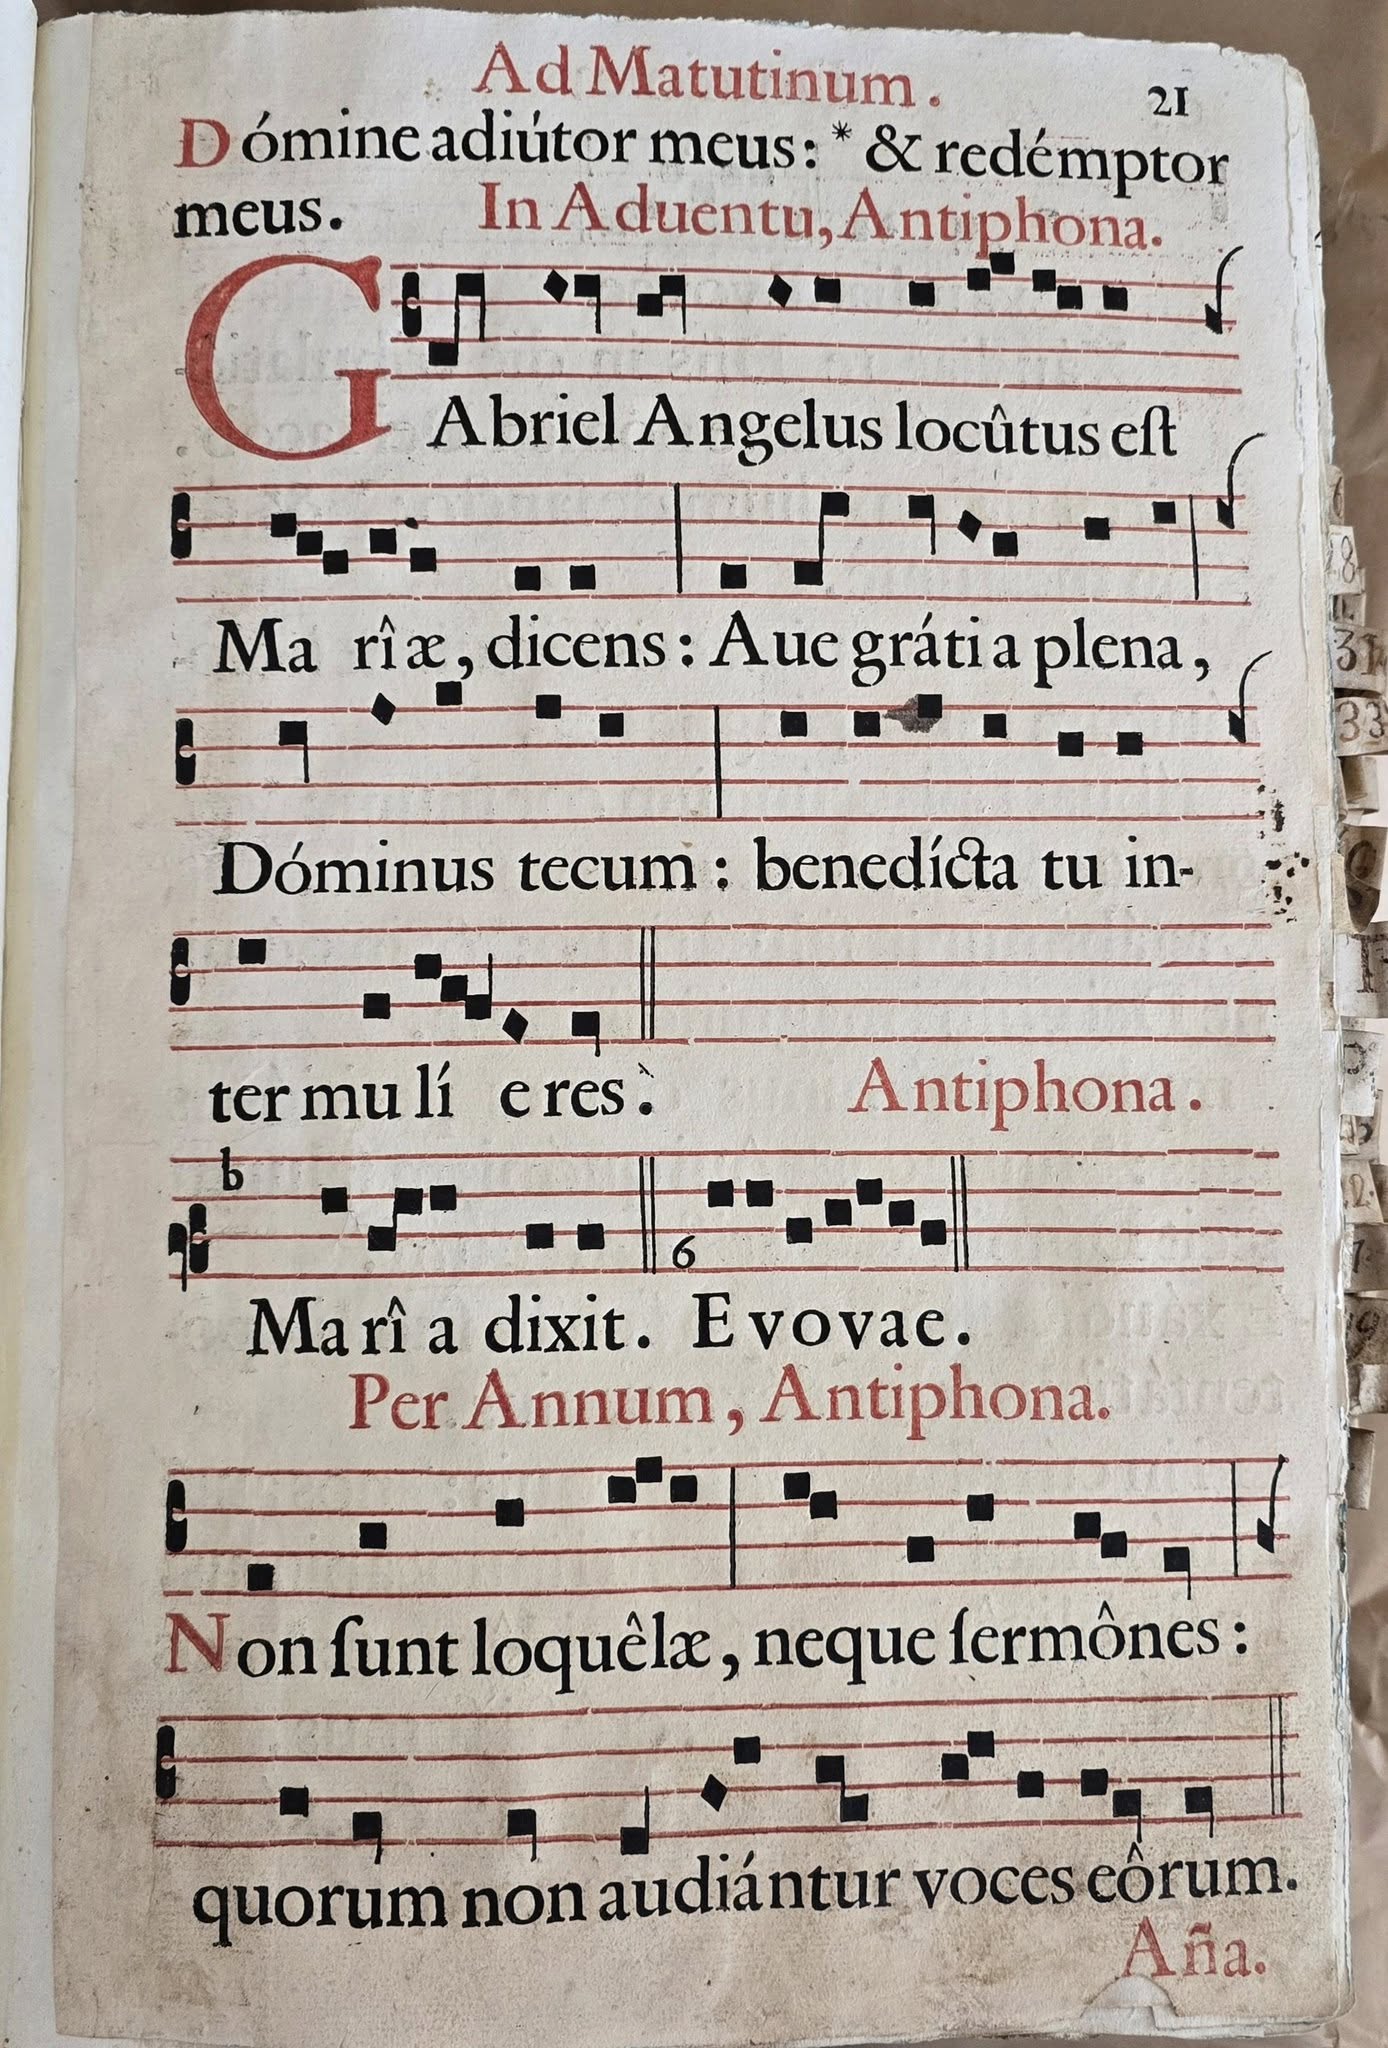 Ad Matutinum. 21
Dómine adiútor meus: * & redémptor
meus. In Aduentu, Antiphona.
GAbriel Angelus locûtus eſt
Ma rî æ, dicens: Aue gráti a plena,
Dóminus tecum: benedícta tu in-
ter mu lí e res. Antiphona.
b
6
Ma rî a dixit. E v o v a e.
Per Annum, Antiphona.
Non ſunt loquêlæ, neque ſermônes:
quorum non audiántur voces eôrum.
Aña.
31
33